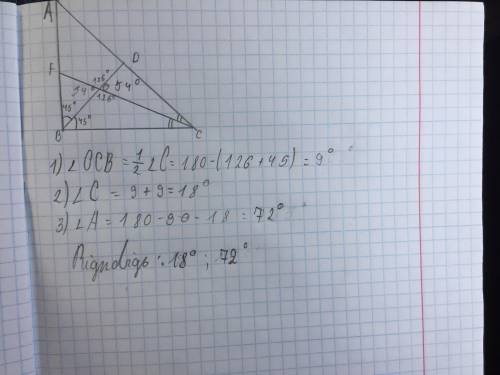 A
D
F
126°
54° O 54°
126°
45°
45°
B
C
1) ∠OCB = 1/2 ∠C = 180 - (126 + 45) = 9°
2) ∠C = 9 + 9 = 18°
3) ∠A = 180 - 90 - 18 = 72°
Відповідь: 18° ; 72°